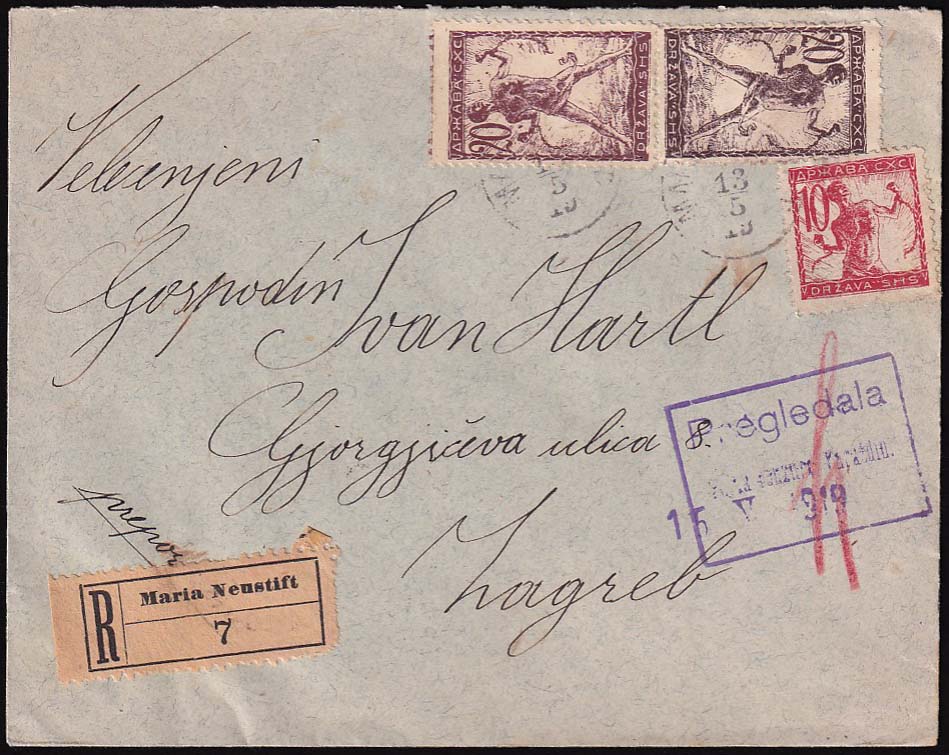 20
ДРЖАВА·СХС
DRŽAVA·SHS
20
ДРЖАВА·СХС
DRŽAVA·SHS
ДРЖАВА·СХС
10
DRŽAVA·SHS
5
19
13
5
19
Velecenjeni
Gospodin Ivan Hartl
Gjorgjićeva ulica 8.
Zagreb
Pregledala
15 V 1919
prepor
R
Maria Neustift
7